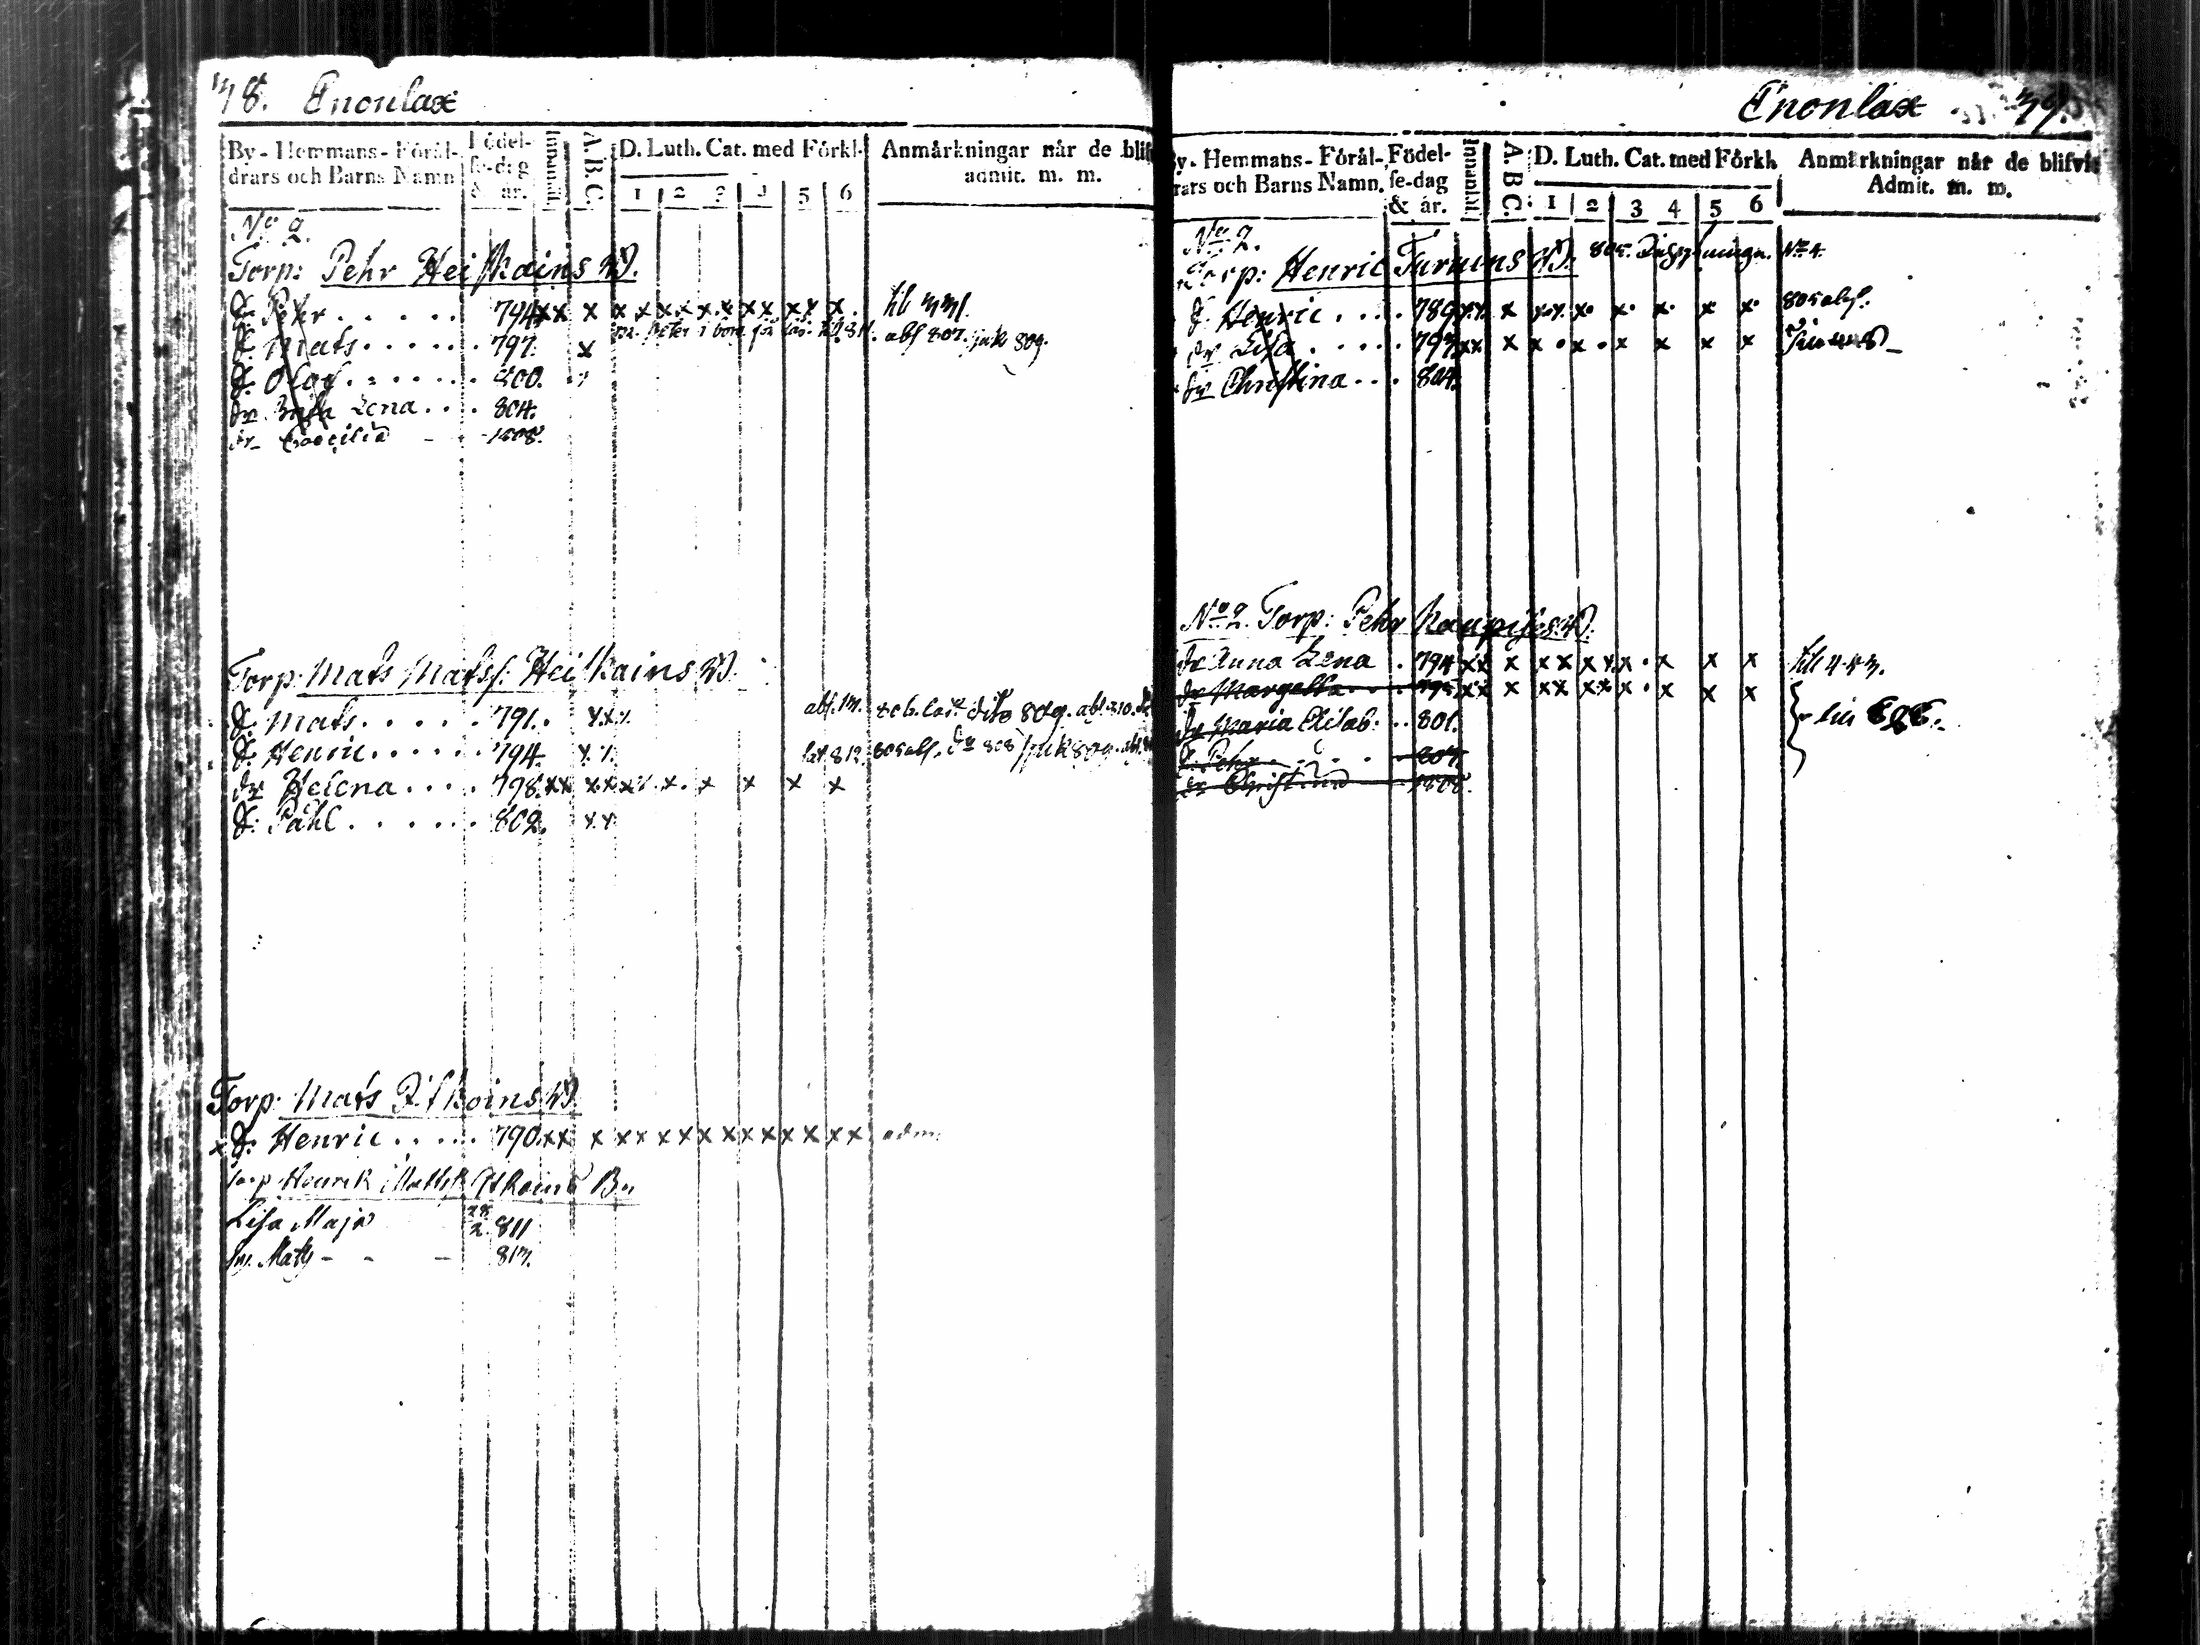 78. Enonlax
By- Hemmans- Förál-
drars och Barns Namn
Födel-
se-dag
& år.
Innanläs.
A.B.C.
D. Luth. Cat. med Förkl.
1 2 3 4 5 6
Anmärkningar når de blif
admit. m. m.
No 2.
Torp: Pehr Heiskains W.
S. Pehr . . . . . 794 xx x x x x x x x x x x x x
S. Mats . . . . . . 797. x abs 807. sjuk 809.
S. Olof . . . . . . 800.
dr Brita Lena . . . 804.
dr Caecilia - - 1808.
Torp: Mats Matss. Heiskains W.
S. Mats . . . . . 791. x x x 809. abs. 810.
S. Henric . . . . . 794. x x 812. 805 abs. dr 808 sjuk 809.
dr Helena . . . . 798. xx xx xx x x x x x
S. Påhl . . . . . 802. x x
Torp: Mats Itkoins W.
x S. Henric . . . . . 790. xx x x x x x x x x x x x x x adm.
Torp Henrik Itkoins Bn
Lisa Maja 28/2 811
Sn. Mats - - - 813.
Enonlax 79.
By- Hemmans- Förál-
drars och Barns Namn.
Födel-
se-dag
& år.
Innanläs.
A.B.C.
D. Luth. Cat. med Förkl.
1 2 3 4 5 6
Anmärkningar når de blifvit
Admit. m. m.
No 2.
Torp: Henric Turuins W. 805. No 4.
S. Henric . . . . 789. xx x x x x x x x x 805 abs.
dr Lisa . . . . . 797 xx x x x x x x x
dr Christina . . . 804.
No 2. Torp: Pehr Kaupises W.
dr Anna Lena . 794 xx x xx xx x x x x
dr Margetta . . . 795 xx x xx xx x x x x
dr Maria Elisab: . . 801.
S. Pehr . . . . . 807.
dr Christina 1808.